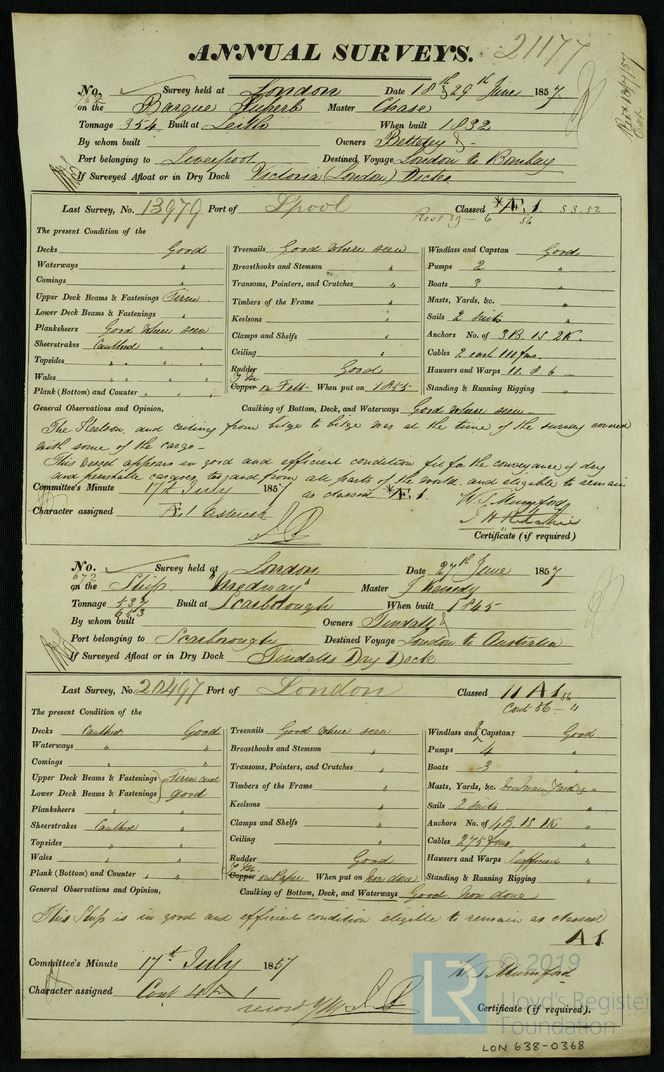 ANNUAL SURVEYS. 21177
No. Survey held at London Date 18th & 29th June 1857
on the Barque Superb Master Chase
Tonnage 354 Built at Leith When built 1832
By whom built Owners
Port belonging to Liverpool Destined Voyage London to Bombay
If Surveyed Afloat or in Dry Dock Victoria (London) Docks
Last Survey, No. 13979 Port of Lpool Classed *Æ.1 SS.52
56
The present Condition of the
Decks Good
Waterways "
Comings "
Upper Deck Beams & Fastenings Firm
Lower Deck Beams & Fastenings "
Planksheers Good where seen
Sheerstrakes Caulked "
Topsides " "
Wales " "
Plank (Bottom) and Counter " "
Treenails Good where seen
Breasthooks and Stemson "
Transoms, Pointers, and Crutches "
Timbers of the Frame "
Keelsons "
Clamps and Shelfs "
Ceiling "
Rudder Good
Y.M.
Copper on Felt When put on 1855
Windlass and Capstan Good
Pumps 2 "
Boats 3 "
Masts, Yards, &c. "
Sails 2 suits "
Anchors No. of 3B. 1S. 2K.
Cables 2 each 110 fms.
Hawsers and Warps "
Standing & Running Rigging "
General Observations and Opinion, Caulking of Bottom, Deck, and Waterways Good where seen
The Keelson, and ceiling from bilge to bilge was at the time of the survey covered
with some of the cargo –
This Vessel appears in good and efficient condition fit for the conveyance of dry
and perishable cargoes, to and from all parts of the world and eligible to remain
as classed *Æ 1
Committee's Minute 17th July 1857
W. J. Mumford
Character assigned Æ.1
Certificate (if required)
No. Survey held at London Date 27th June 1857
672
on the Ship "Medway" Master J Kennedy
Tonnage 532 Built at Scarborough When built 1845
683
By whom built Owners Tindall
Port belonging to Scarborough Destined Voyage London to Australia
If Surveyed Afloat or in Dry Dock Tindalls Dry Dock
Last Survey, No. 20497 Port of London Classed 11 A 1 56
Cont 56 – 11
The present Condition of the
Decks Caulked Good
Waterways " "
Comings " "
Upper Deck Beams & Fastenings Firm and
Lower Deck Beams & Fastenings good
Planksheers " "
Sheerstrakes Caulked "
Topsides " "
Wales " "
Plank (Bottom) and Counter " "
Treenails Good where seen
Breasthooks and Stemson "
Transoms, Pointers, and Crutches "
Timbers of the Frame "
Keelsons "
Clamps and Shelfs "
Ceiling "
Rudder Good
Y.M.
Copper on Paper When put on Now done
Windlass and 2 Capstans Good
Pumps 4 "
Boats 3 "
Masts, Yards, &c. "
Sails 2 suits "
Anchors No. of 4B. 1S. 1K
Cables 275 fms.
Hawsers and Warps Sufficient "
Standing & Running Rigging "
General Observations and Opinion, Caulking of Bottom, Deck, and Waterways Good Now done
This Ship is in good and efficient condition eligible to remain as classed
A 1
Committee's Minute 17th July 1857
W. J. Mumford
Character assigned Cont
Certificate (if required).
© 2019
LR Lloyd's Register
Foundation
LON 638-0368